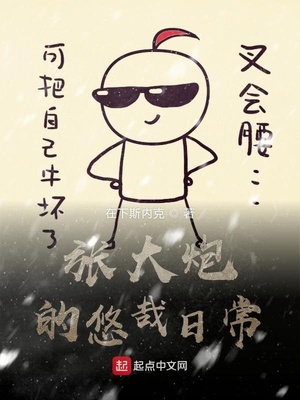 叉会腰：：
可把自己牛坏了
在下斯内克 著
张大炮
的悠哉日常
起点中文网